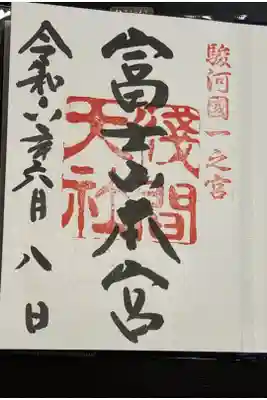 駿河國一之宮
富士山本宮
淺間天社
令和六年六月八日